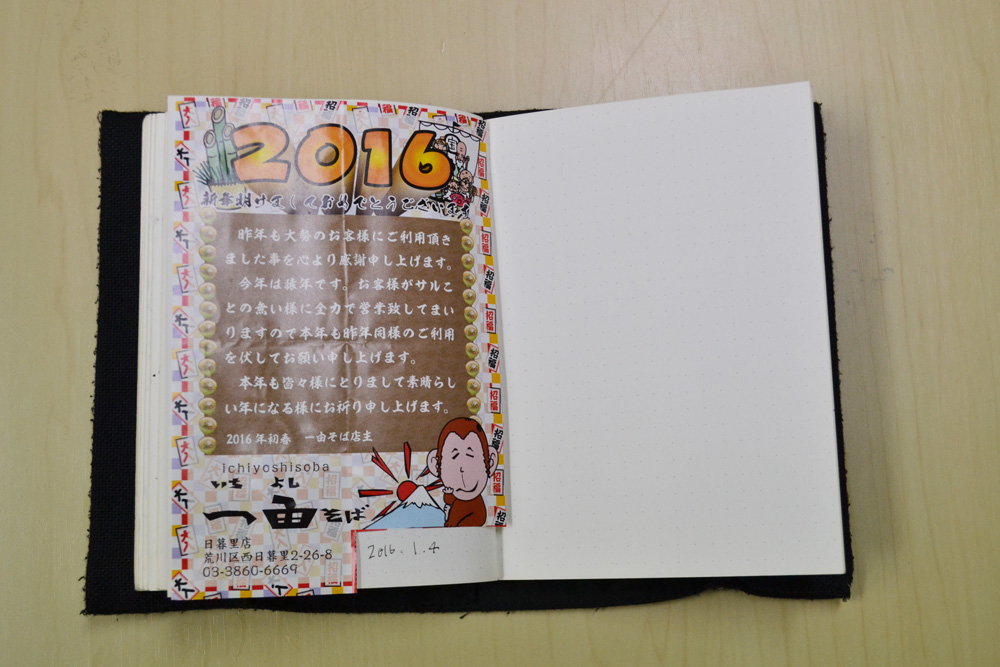 2016
新年明けましておめでとうございます
昨年も大勢のお客様にご利用頂き
ました事を心より感謝申し上げます。
今年は猿年です。お客様がサルこ
との無い様に全力で営業致してまい
りますので本年も昨年同様のご利用
を伏してお願い申し上げます。
本年も皆々様にとりまして素晴らし
い年になる様にお祈り申し上げます。
2016年初春 一由そば店主
ichiyoshisoba
いち よし
一由そば
日暮里店
荒川区西日暮里2-26-8
03-3860-6669
2016.1.4